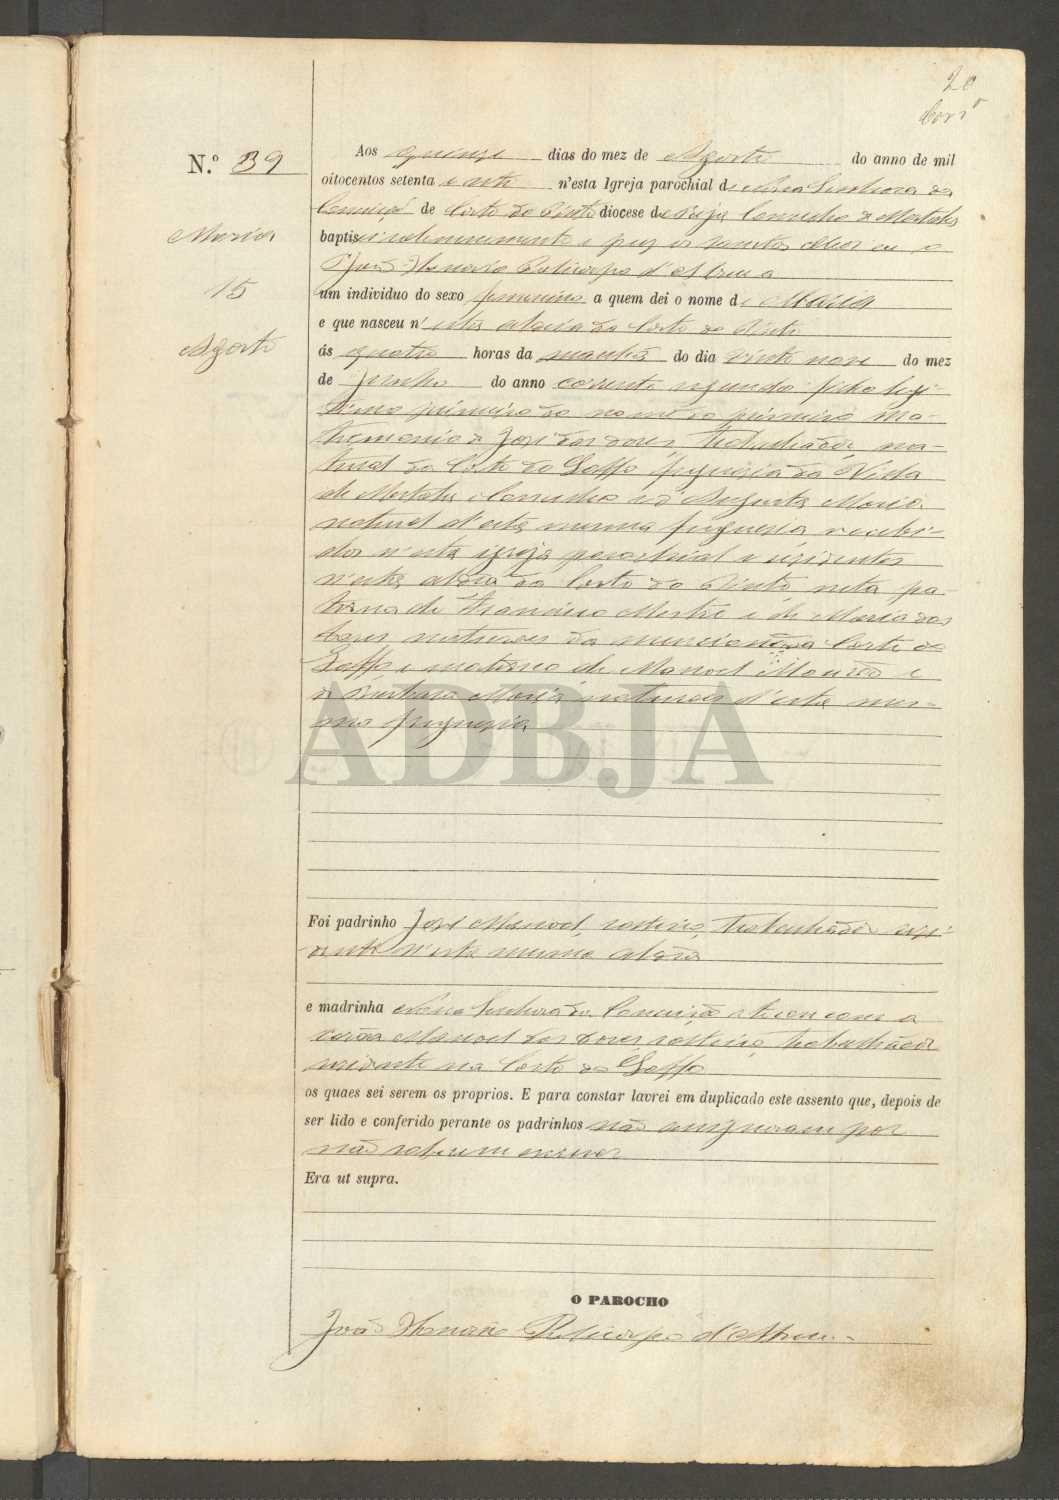 20
N.º 39
Maria
15
Agosto
Aos quinze dias do mez de Agosto do anno de mil
oitocentos setenta e sete n'esta Igreja parochial de Nossa Senhora da
Conceição de Corte do Pinto diocese de Beja Concelho de Mertola
baptisei solemnemente e puz os santos oleos eu o
João Policarpo d'Abreu
um individuo do sexo femenino a quem dei o nome de Maria
e que nasceu n'esta aldeia da Corte do Pinto
ás quatro horas da manhã do dia vinte nove do mez
de Junho do anno corrente segundo filha legi-
tima primeira do nome do primeiro ma-
tremonio de José das Dores, trabalhador na-
tural da Corte do Gaffo freguesia da Villa
de Mertola e Concelho e d'Augusta Maria
natural d'esta mesma freguesia recebi-
dos n'esta igreja parochial e residentes
n'esta aldeia da Corte do Pinto neta pa-
terna de Francisco Mestre e de Maria das
Dores naturaes da mencionada Corte do
Gaffo e materna de Manoel Mourão e
de Barbara Maria naturaes d'esta mes-
ma freguesia
ADBJA
Foi padrinho José Manoel, solteiro, trabalhador resi-
dente n'esta mesma aldeia
e madrinha Nossa Senhora da Conceição e tocou com a
corôa Manoel das Dores solteiro, trabalhador
residente na Corte do Gaffo
os quaes sei serem os proprios. E para constar lavrei em duplicado este assento que, depois de
ser lido e conferido perante os padrinhos não assignaram por
não saberem escrever
Era ut supra.
O PAROCHO
João Policarpo d'Abreu